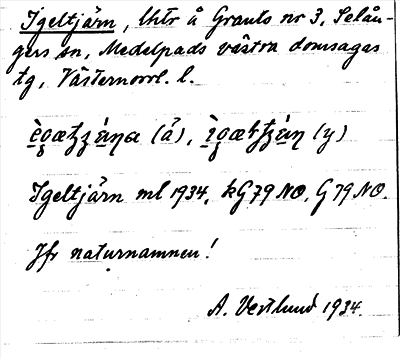 Igeltjärn, lhtr å Granlo nr 3, Selån-
gers sn, Medelpads västra domsagas
tg, Västernorrl. l.
(ä), (y)
Igeltjärn ml 1934, kG79NO, G79NO.
Jfr naturnamnen!
A. Vestlund 1934.